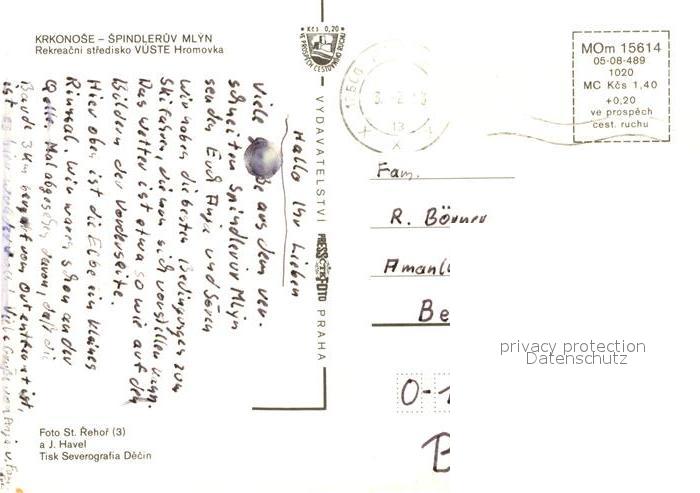 KRKONOŠE – ŠPINDLERŮV MLÝN
Rekreační středisko VÚSTE Hromovka
Kčs 0,20
VE PROSPĚCH CESTOVNÍHO RUCHU
VYDAVATELSTVÍ PRESSFOTO PRAHA
MOm 15614
05-08-489
1020
MC Kčs 1,40
+0,20
ve prospěch
cest. ruchu
Hallo Ihr Lieben
Viele aus dem ver-
schneiten Spindleruv Mlyn
senden Euch Anja und Sören
Wir haben die besten Bedingungen zum
Skifahren, die man sich vorstellen kann.
Das Wetter ist etwa so wie auf den
Bildern der Vorderseite.
Hier oben ist die Elbe ein kleines
Rinnsal. Wir waren schon an der
Quelle. Mal abgesehen davon, daß die
Baude 3 km vom Ort entfernt ist,
ist es hier
Fam.
R. Börner
Be
O-1
B
privacy protection
Datenschutz
Foto St. Řehoř (3)
a J. Havel
Tisk Severografia Děčín